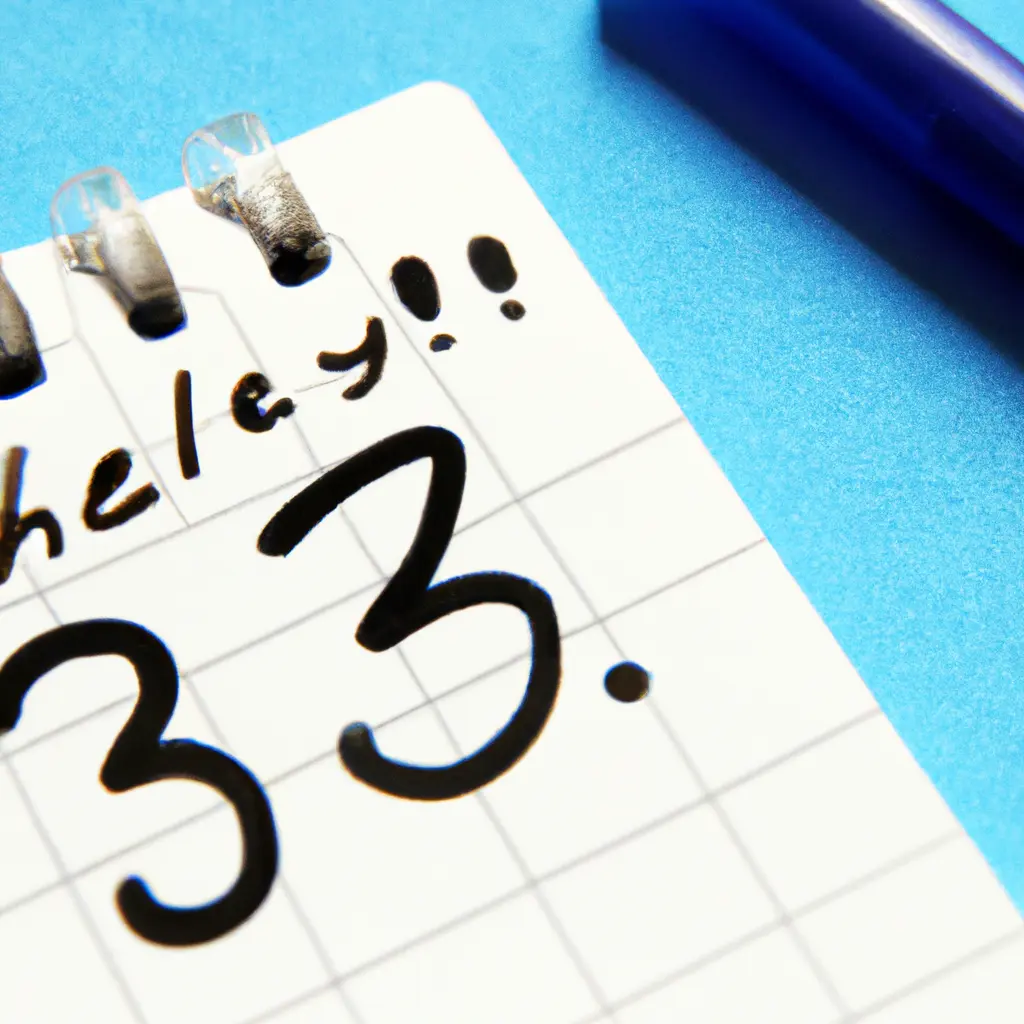 heley!!
33.